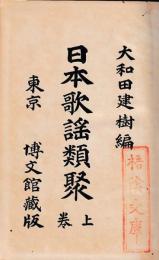 大和田建樹編
日本歌謡類聚 上巻
東京 博文館蔵版